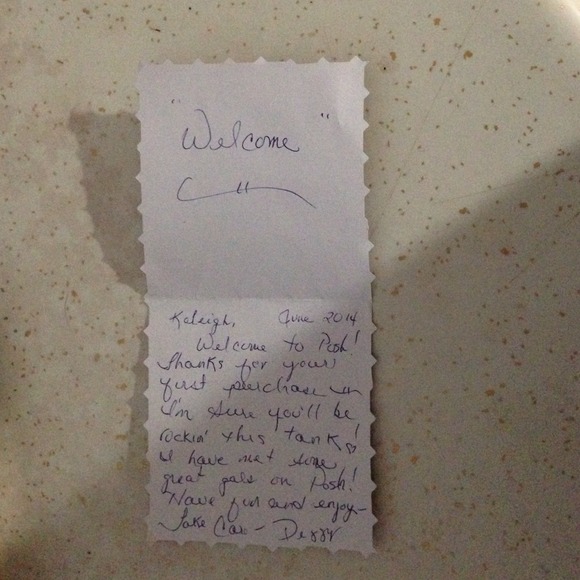 "Welcome"
Kaleigh, June 2014
Welcome to Posh!
Thanks for your
first purchase
I'm sure you'll be
rockin' this tank!
I have met some
great gals on Posh!
Have fun and enjoy-
Take Care -